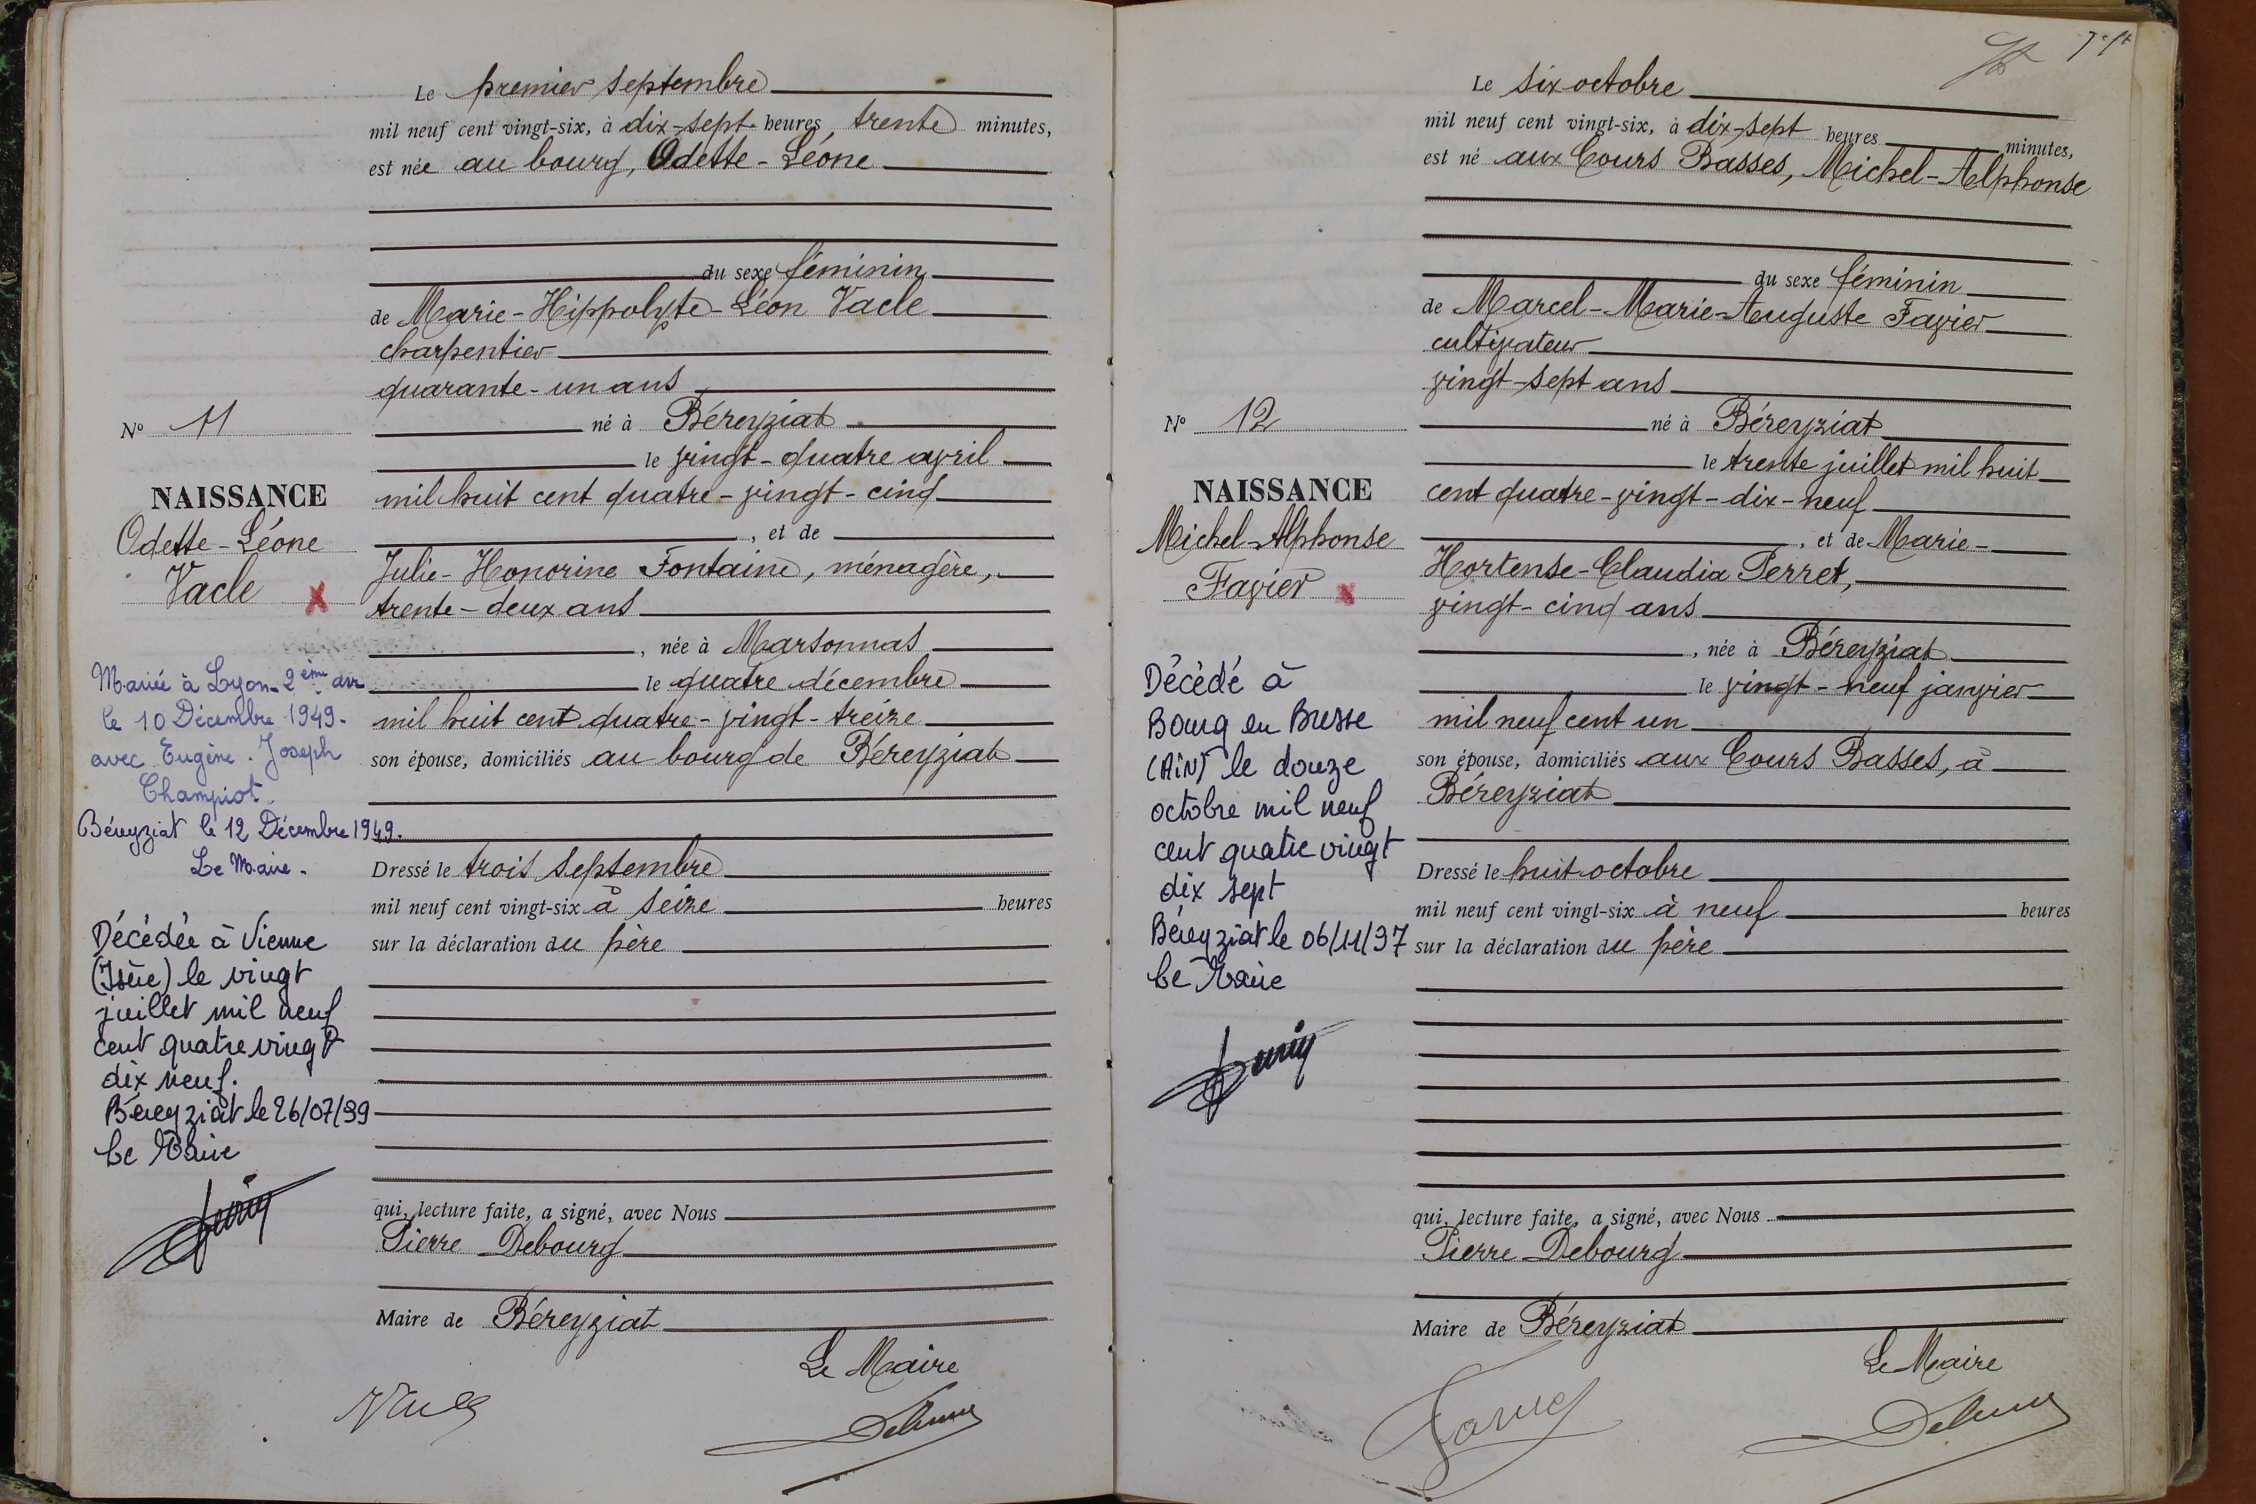 Le premier septembre
mil neuf cent vingt-six, à dix-sept heures trente minutes,
est née au bourg, Odette-Léone
du sexe féminin
de Marie-Hippolyte-Léon Vacle
charpentier
quarante-un ans
né à Béreyziat
le vingt-quatre avril
mil huit cent quatre-vingt-cinq
, et de
Julie-Honorine Fontaine, ménagère,
trente-deux ans
, née à Marsonnas
le quatre décembre
mil huit cent quatre-vingt-treize
son épouse, domiciliés au bourg de Béreyziat
Dressé le trois septembre
mil neuf cent vingt-six à seize heures
sur la déclaration du père
qui, lecture faite, a signé, avec Nous
Pierre Debourg
Maire de Béreyziat
Le Maire
No 11
NAISSANCE
Odette-Léone
Vacle
Mariée à Lyon-2ème arr
le 10 Décembre 1949.
avec Eugène. Joseph
Champiot.
Béreyziat le 12 Décembre 1949.
Le Maire.
Décédée à Vienne
(Isère) le vingt
juillet mil neuf
cent quatre vingt
dix neuf.
Béreyziat le 26/07/99
Le Maire
Le six octobre
mil neuf cent vingt-six, à dix-sept heures minutes,
est né aux Cours Basses, Michel-Alphonse
du sexe féminin
de Marcel-Marie-Auguste Favier
cultivateur
vingt-sept ans
né à Béreyziat
le trente juillet mil huit
cent quatre-vingt-dix-neuf
, et de Marie-
Hortense-Claudia Perret,
vingt-cinq ans
, née à Béreyziat
le vingt-neuf janvier
mil neuf cent un
son épouse, domiciliés aux Cours Basses, à
Béreyziat
Dressé le huit octobre
mil neuf cent vingt-six à neuf heures
sur la déclaration du père
qui, lecture faite, a signé, avec Nous
Pierre Debourg
Maire de Béreyziat
Le Maire
No 12
NAISSANCE
Michel-Alphonse
Favier
Décédé à
Bourg en Bresse
(AiN) le douze
octobre mil neuf
cent quatre vingt
dix sept
Béreyziat le 06/11/97
Le Maire